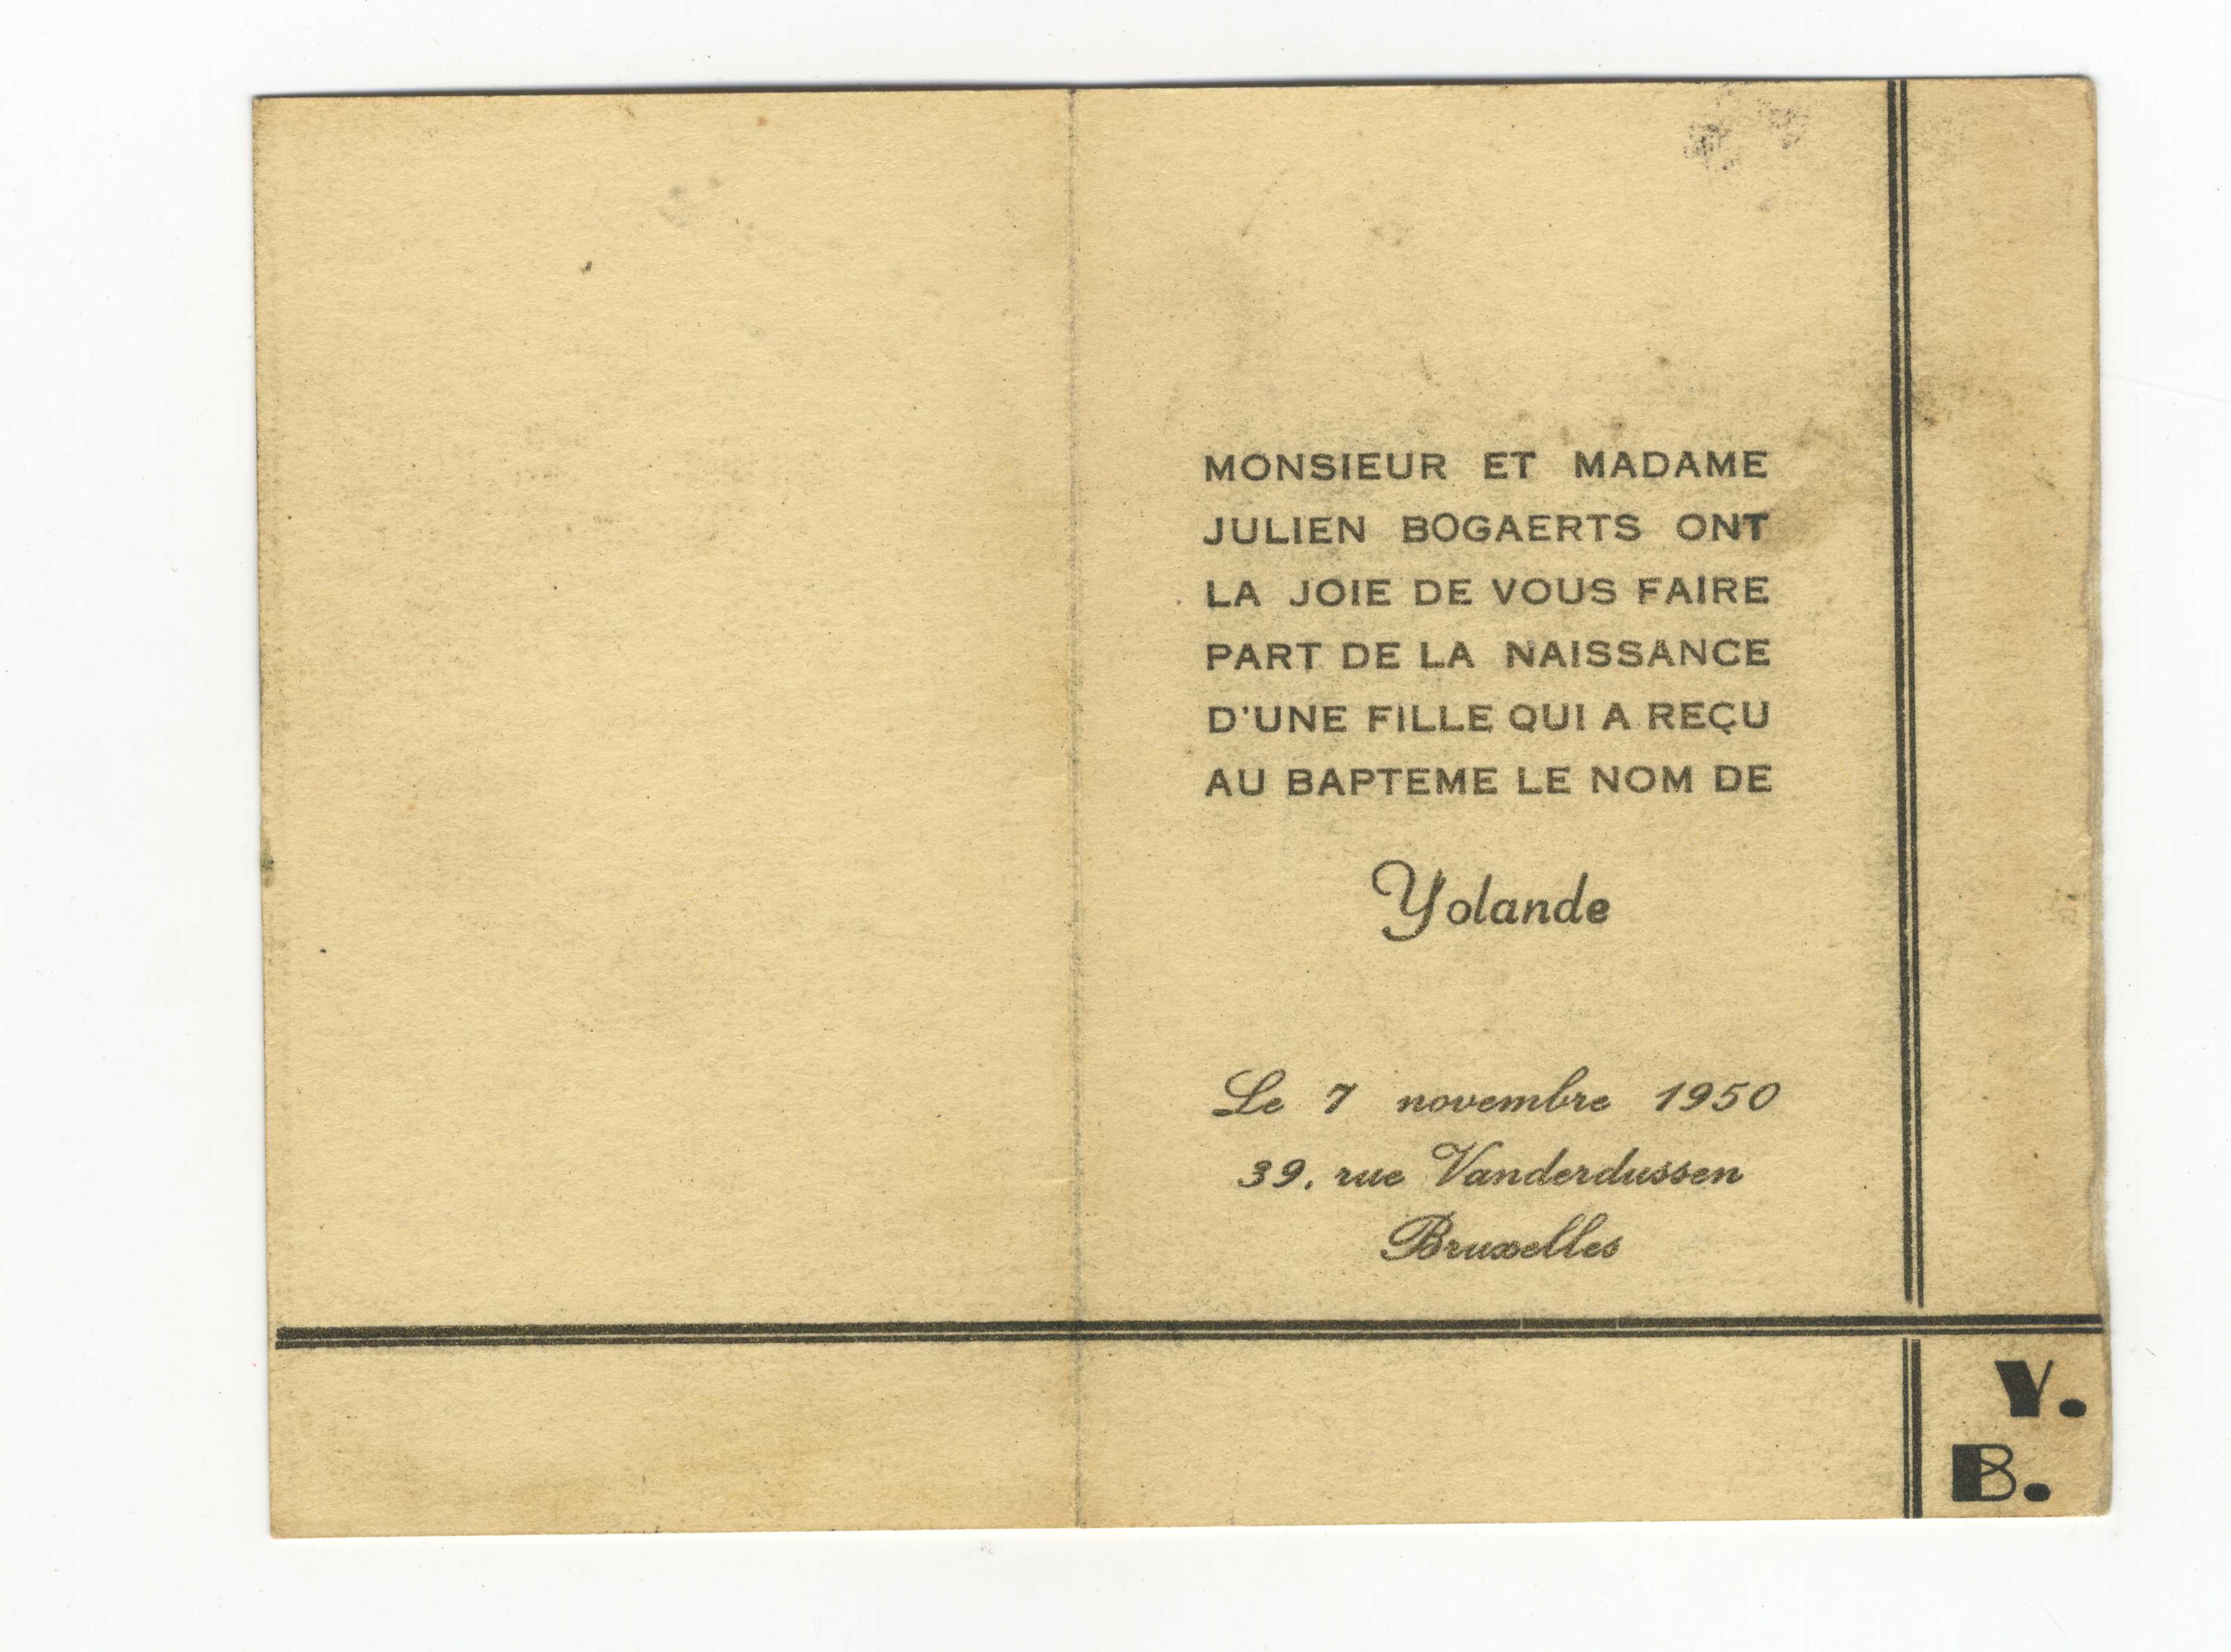 MONSIEUR ET MADAME
JULIEN BOGAERTS ONT
LA JOIE DE VOUS FAIRE
PART DE LA NAISSANCE
D'UNE FILLE QUI A REÇU
AU BAPTEME LE NOM DE
Yolande
Le 7 novembre 1950
39, rue Vanderdussen
Bruxelles
Y.
B.